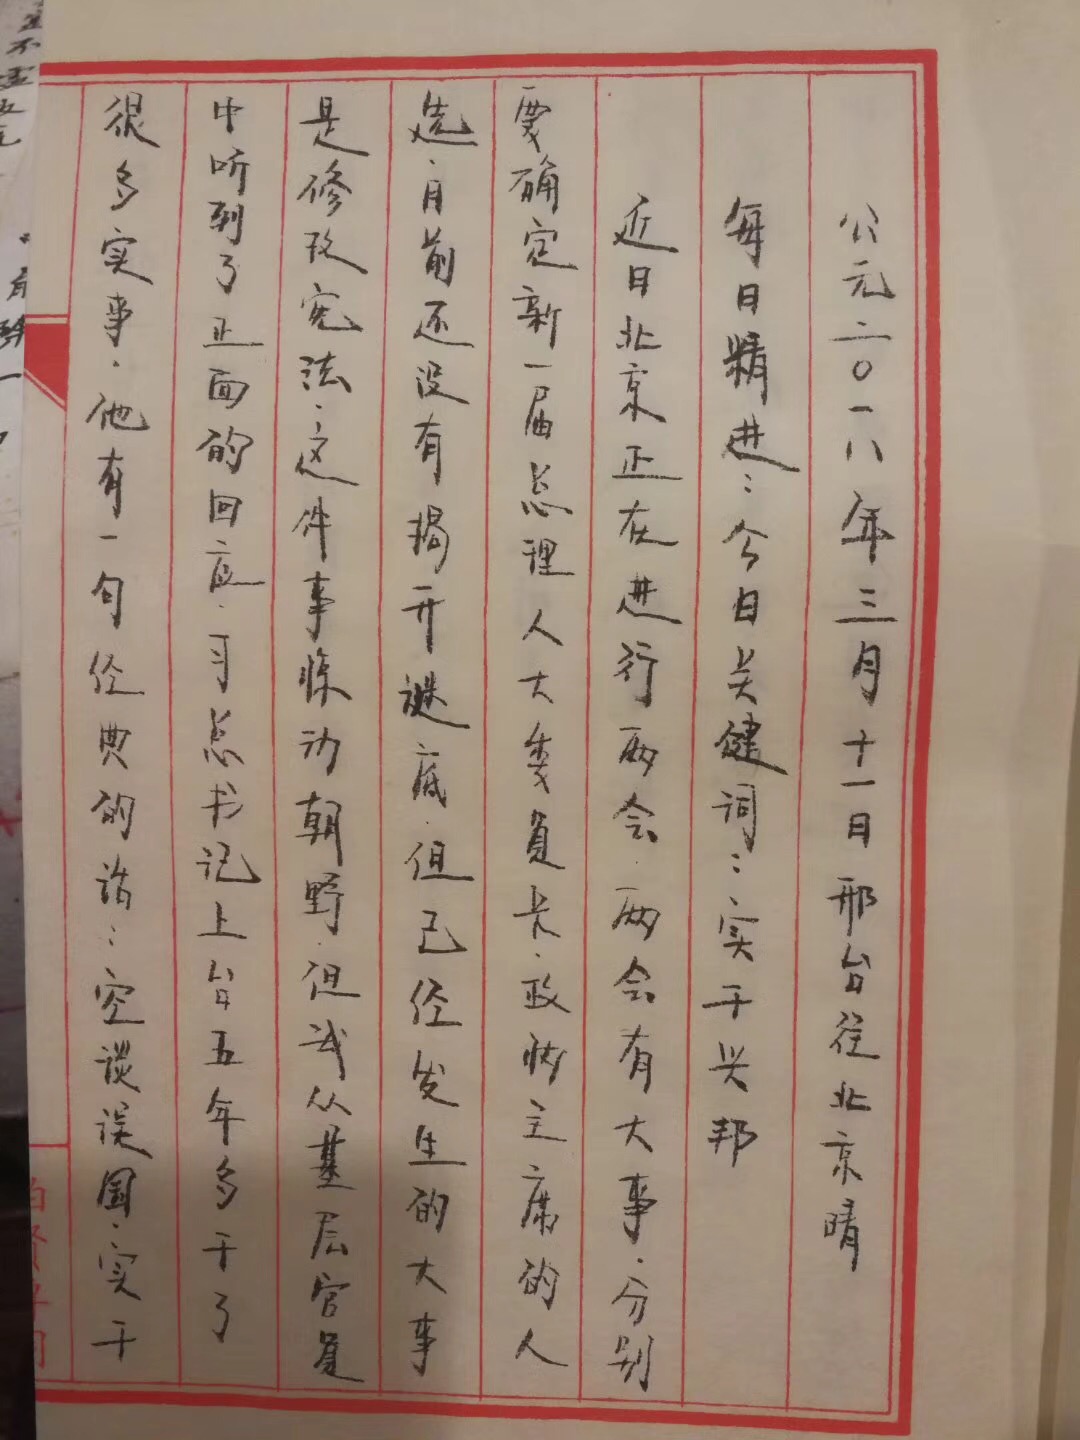 公元二〇一八年三月十一日邢台往北京晴
每日精进：今日关健词：实干兴邦
近日北京正在进行两会．两会有大事．分别
要确定新一届总理人大委員长．政协主席的人
选．目前还没有揭开谜底．但已经发生的大事
是修改宪法．这件事惊动朝野．但我从基层官員
中听到了正面的回应．习总书记上台五年多干了
很多实事．他有一句经典的话：空谈误国．实干